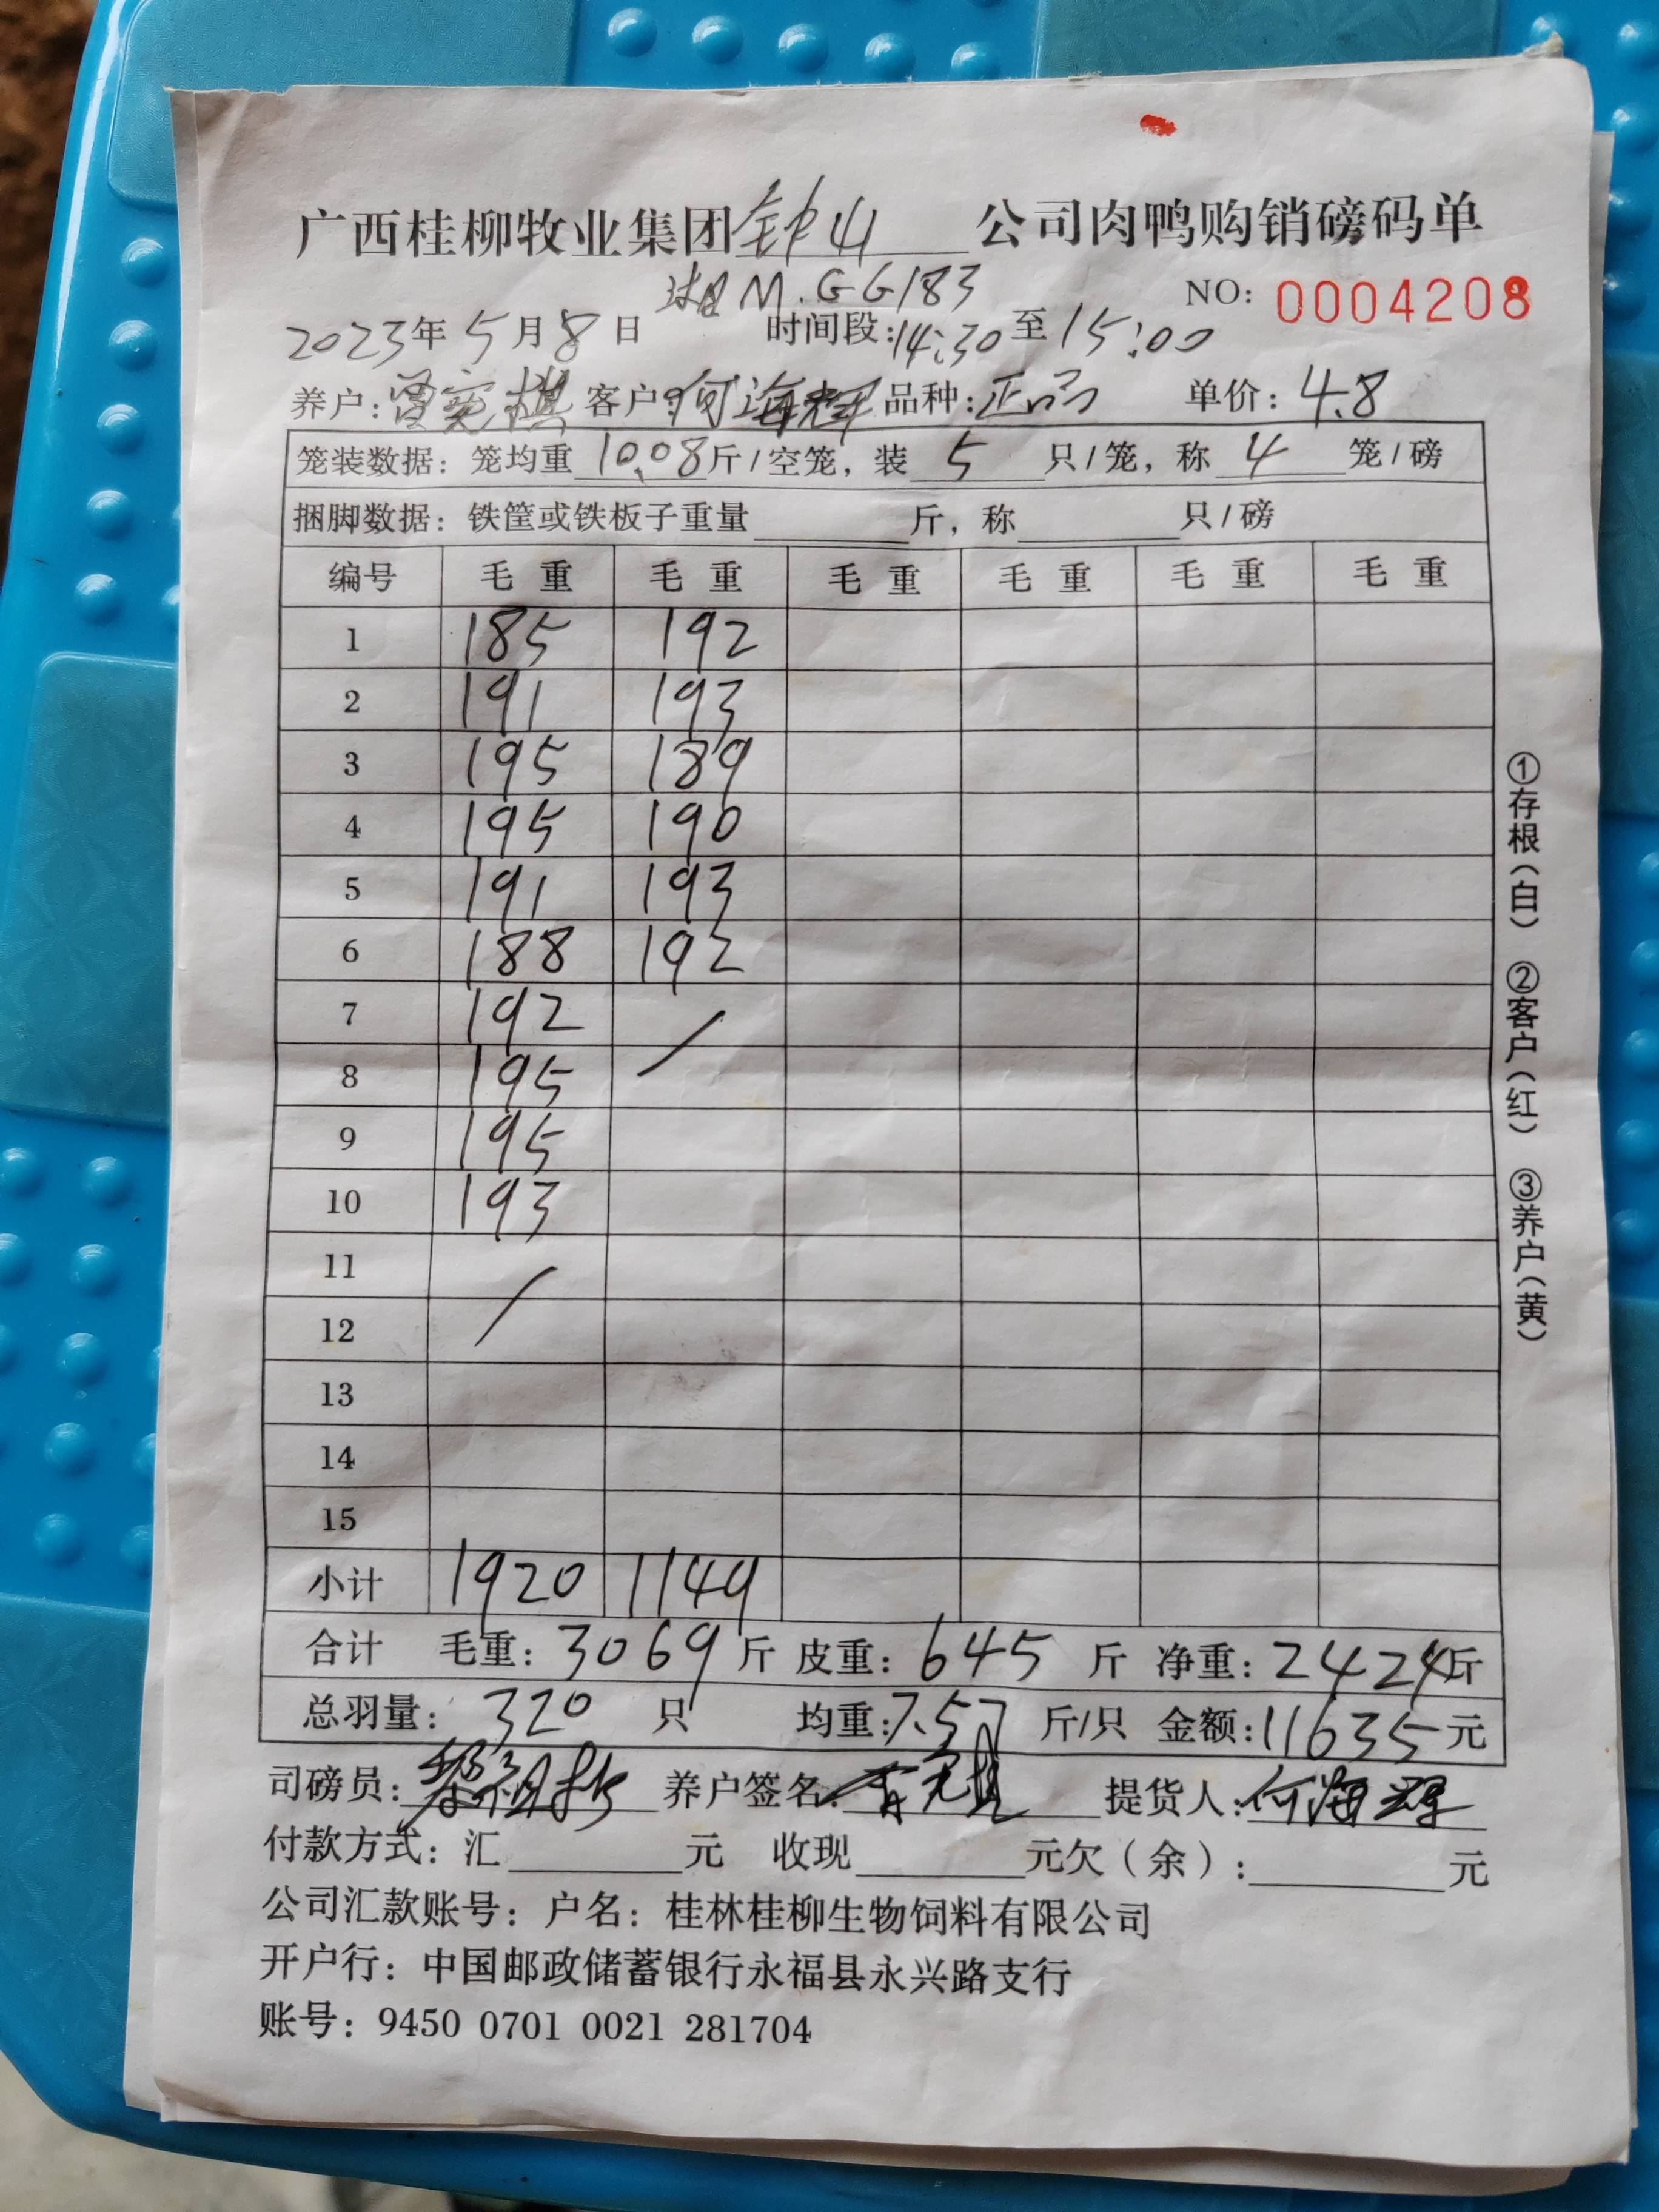 广西桂柳牧业集团钟山公司肉鸭购销磅码单
湘M.GG183
NO: 0004208
2023年5月8日 时间段:14:30至15:00
养户: 客户:何海辉 品种:正品 单价: 4.8
笼装数据: 笼均重 10.08斤/空笼, 装 5 只/笼, 称 4 笼/磅
捆脚数据: 铁筐或铁板子重量 斤, 称 只/磅
编号 毛重 毛重 毛重 毛重 毛重 毛重
1 185 192
2 191 193
3 195 189
4 195 190
5 191 193
6 188 192
7 192
8 195
9 195
10 193
11
12
13
14
15
小计 1920 1149
合计 毛重: 3069 斤 皮重: 645 斤 净重: 2424斤
总羽量: 320 只 均重:7.57 斤/只 金额:11635元
司磅员: 养户签名: 提货人:何海辉
付款方式: 汇 元 收现 元欠(余): 元
公司汇款账号: 户名: 桂林桂柳生物饲料有限公司
开户行: 中国邮政储蓄银行永福县永兴路支行
账号: 9450 0701 0021 281704
①存根(白) ②客户(红) ③养户(黄)